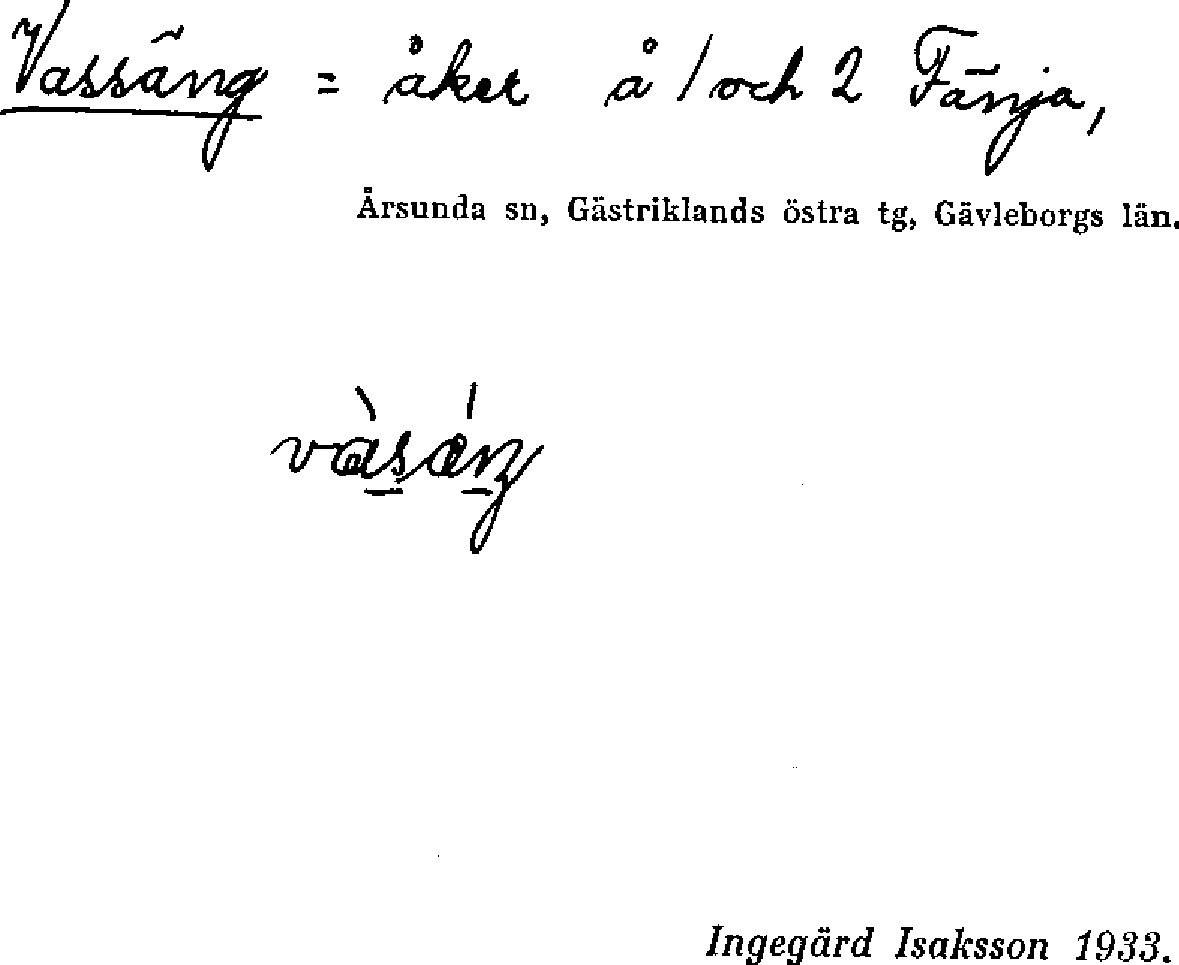 Vassäng = åker å 1 och 2 Fänja,
Årsunda sn, Gästriklands östra tg, Gävleborgs län.
Ingegärd Isaksson 1933.